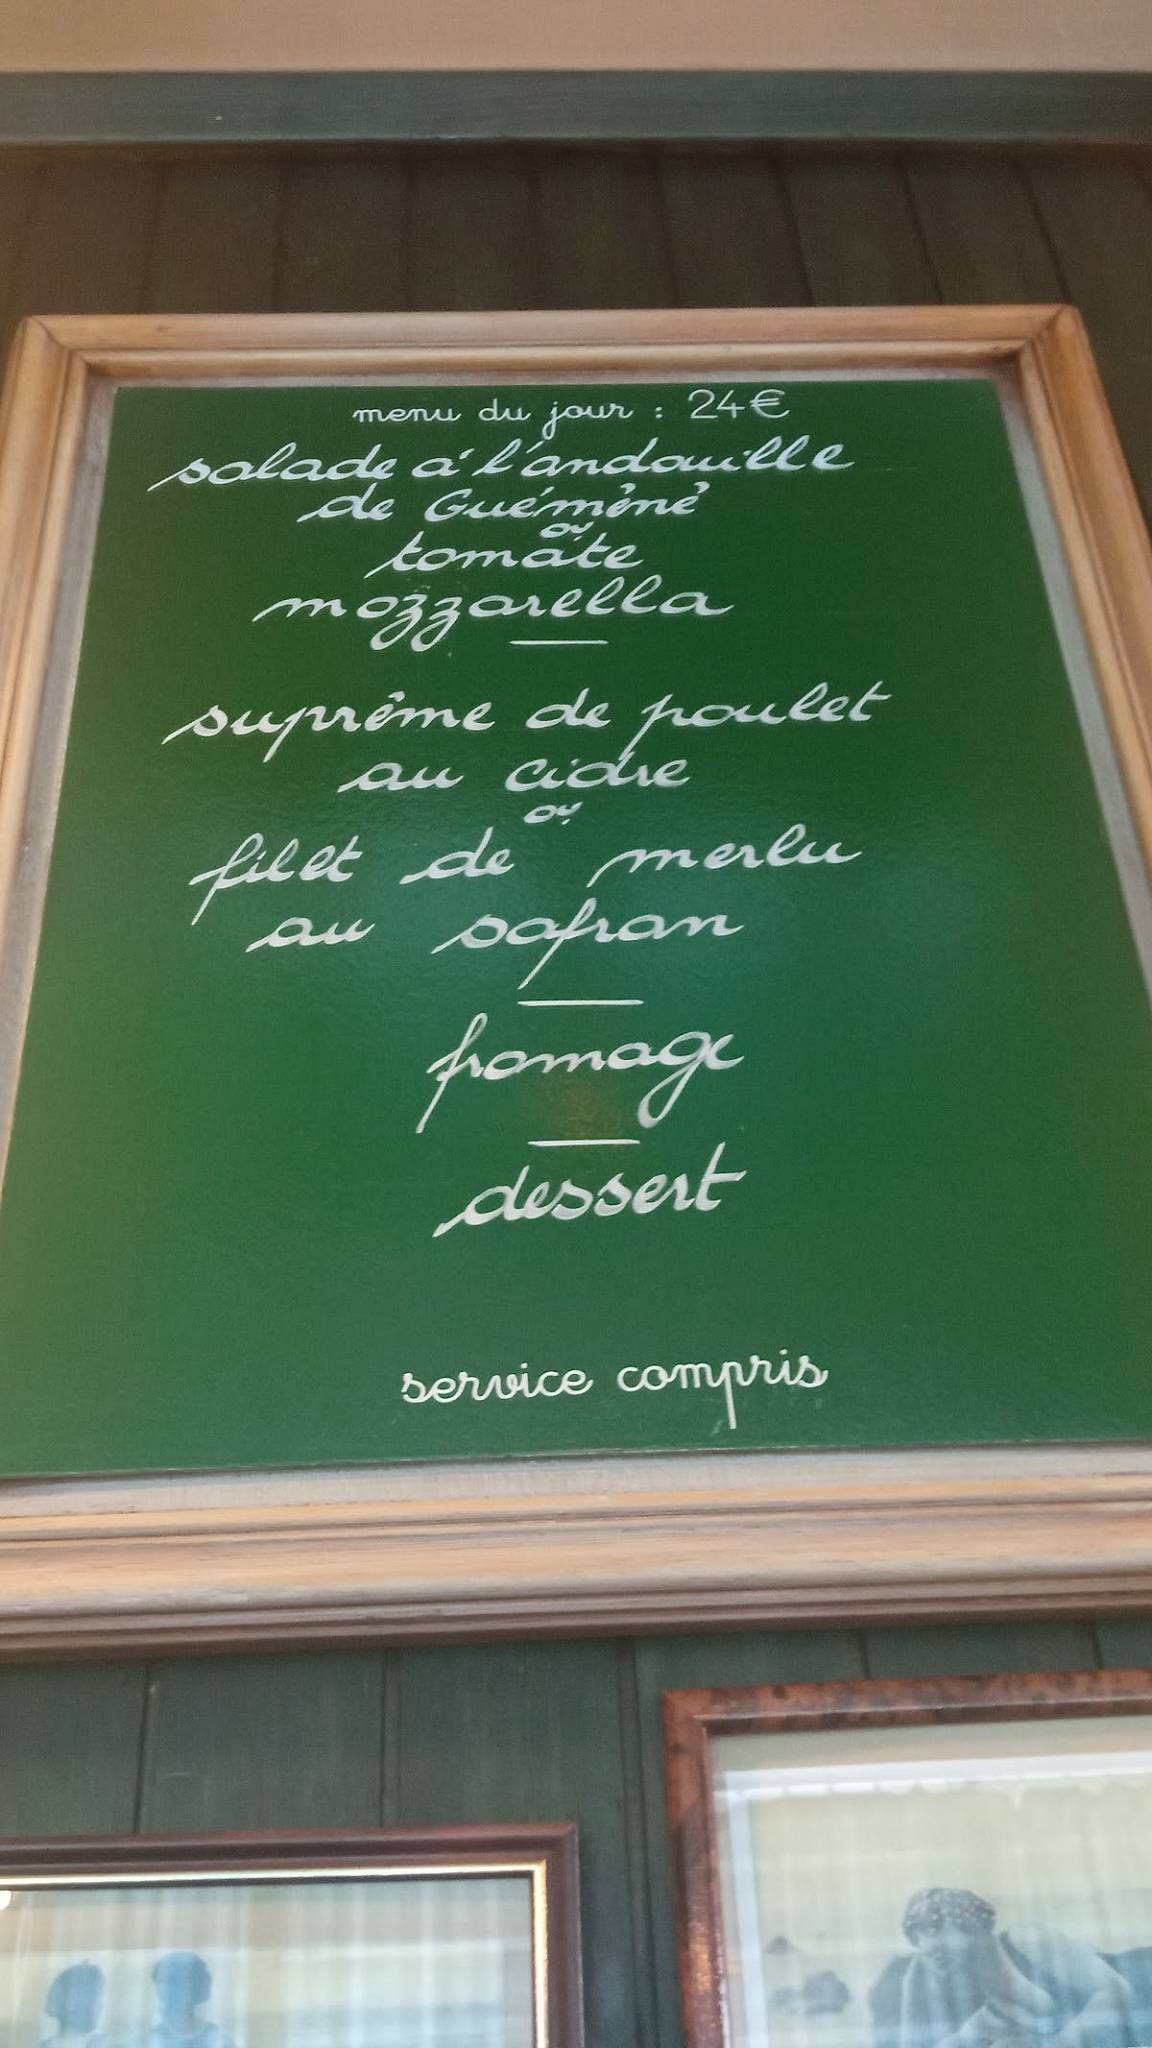 menu du jour : 24€
salade à l'andouille
de Guéméné
ou
tomate
mozzarella
suprême de poulet
au cidre
ou
filet de merlu
au safran
fromage
dessert
service compris